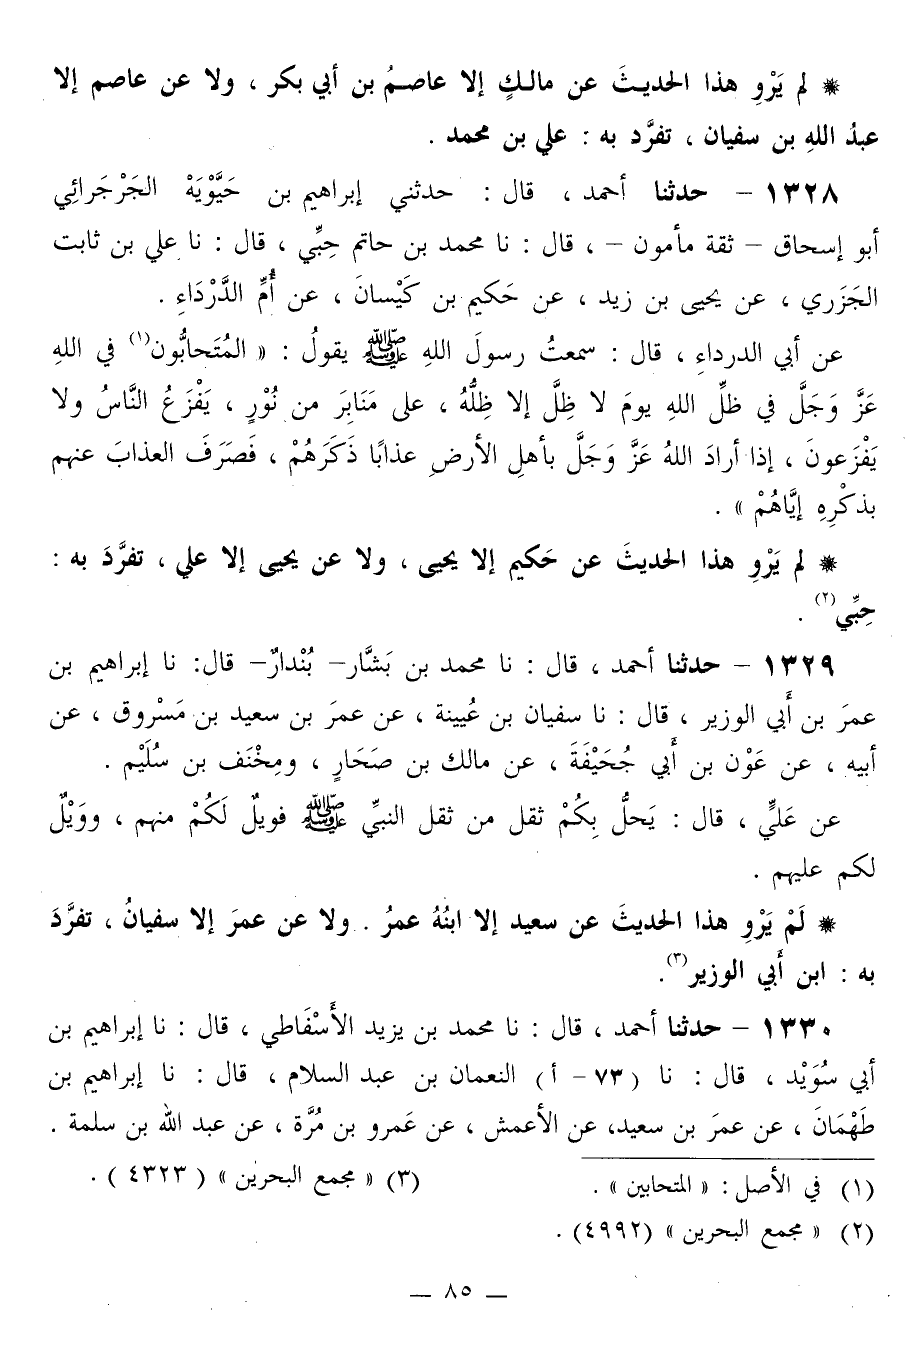 * لم يَرْوِ هذا الحديثَ عن مالكٍ إلا عاصمُ بن أبي بكر ، ولا عن عاصم إلا
عبدُ اللهِ بن سفيان ، تفرَّد به : علي بن محمد .
١٣٢٨ – حدثنا أحمد ، قال : حدثني إبراهيم بن حَيَّوْيَهْ الجَرْجَرائِي
أبو إسحاق – ثقة مأمون – ، قال : نا محمد بن حاتم حِبِّي ، قال : نا علي بن ثابت
الجَزَري ، عن يحيى بن زيد ، عن حَكيم بن كَيْسانَ ، عن أُمِّ الدَّرْدَاءِ .
عن أبي الدرداءِ ، قال : سمعتُ رسولَ اللهِ ﷺ يقولُ : « المُتَحابُّون(١) في اللهِ
عَزَّ وَجَلَّ في ظلِّ اللهِ يومَ لا ظِلَّ إلا ظِلُّهُ ، على مَنَابِرَ من نُوْرٍ ، يَفْزَعُ النَّاسُ ولا
يَفْزَعونَ ، إذا أرادَ اللهُ عَزَّ وَجَلَّ بأهلِ الأرضِ عذابًا ذَكَرَهُمْ ، فَصَرَفَ العذابَ عنهم
بذكْرِهِ إيَّاهُمْ » .
* لم يَرْوِ هذا الحديثَ عن حَكيم إلا يحيى ، ولا عن يحيى إلا علي ، تفرَّدَ به :
حِبِّي(٢) .
١٣٢٩ – حدثنا أحمد ، قال : نا محمد بن بَشَّار– بُنْدارٌ– قال: نا إبراهيم بن
عمرَ بن أَبي الوزير ، قال : نا سفيان بن عُيينة ، عن عمرَ بن سعيد بن مَسْروق ، عن
أبيه ، عن عَوْن بن أَبي جُحَيْفَةَ ، عن مالك بن صَحَارٍ ، ومِخْنَف بن سُلَيْم .
عن عَليٍّ ، قال : يَحلُّ بِكُمْ ثقل من ثقل النبيِّ ﷺ فويلٌ لَكُمْ منهم ، ووَيْلٌ
لكم عليهم .
* لَمْ يَرْوِ هذا الحديثَ عن سعيد إلا ابنُهُ عمرُ . ولا عن عمرَ إلا سفيانُ ، تفرَّدَ
به : ابن أَبي الوزير(٣).
١٣٣٠ – حدثنا أحمد ، قال : نا محمد بن يزيد الأَسْفَاطي ، قال : نا إبراهيم بن
أبي سُوَيْد ، قال : نا ( ٧٣ – أ ) النعمان بن عبد السلام ، قال : نا إبراهيم بن
طَهْمَانَ ، عن عمرَ بن سعيد، عن الأعمش ، عن عَمرو بن مُرَّة ، عن عبد الله بن سلمة .
(١) في الأصل : « المتحابين » .
(٢) « مجمع البحرين » (٤٩٩٢) .
(٣) « مجمع البحرين » ( ٤٣٢٣ ) .
— ٨٥ —